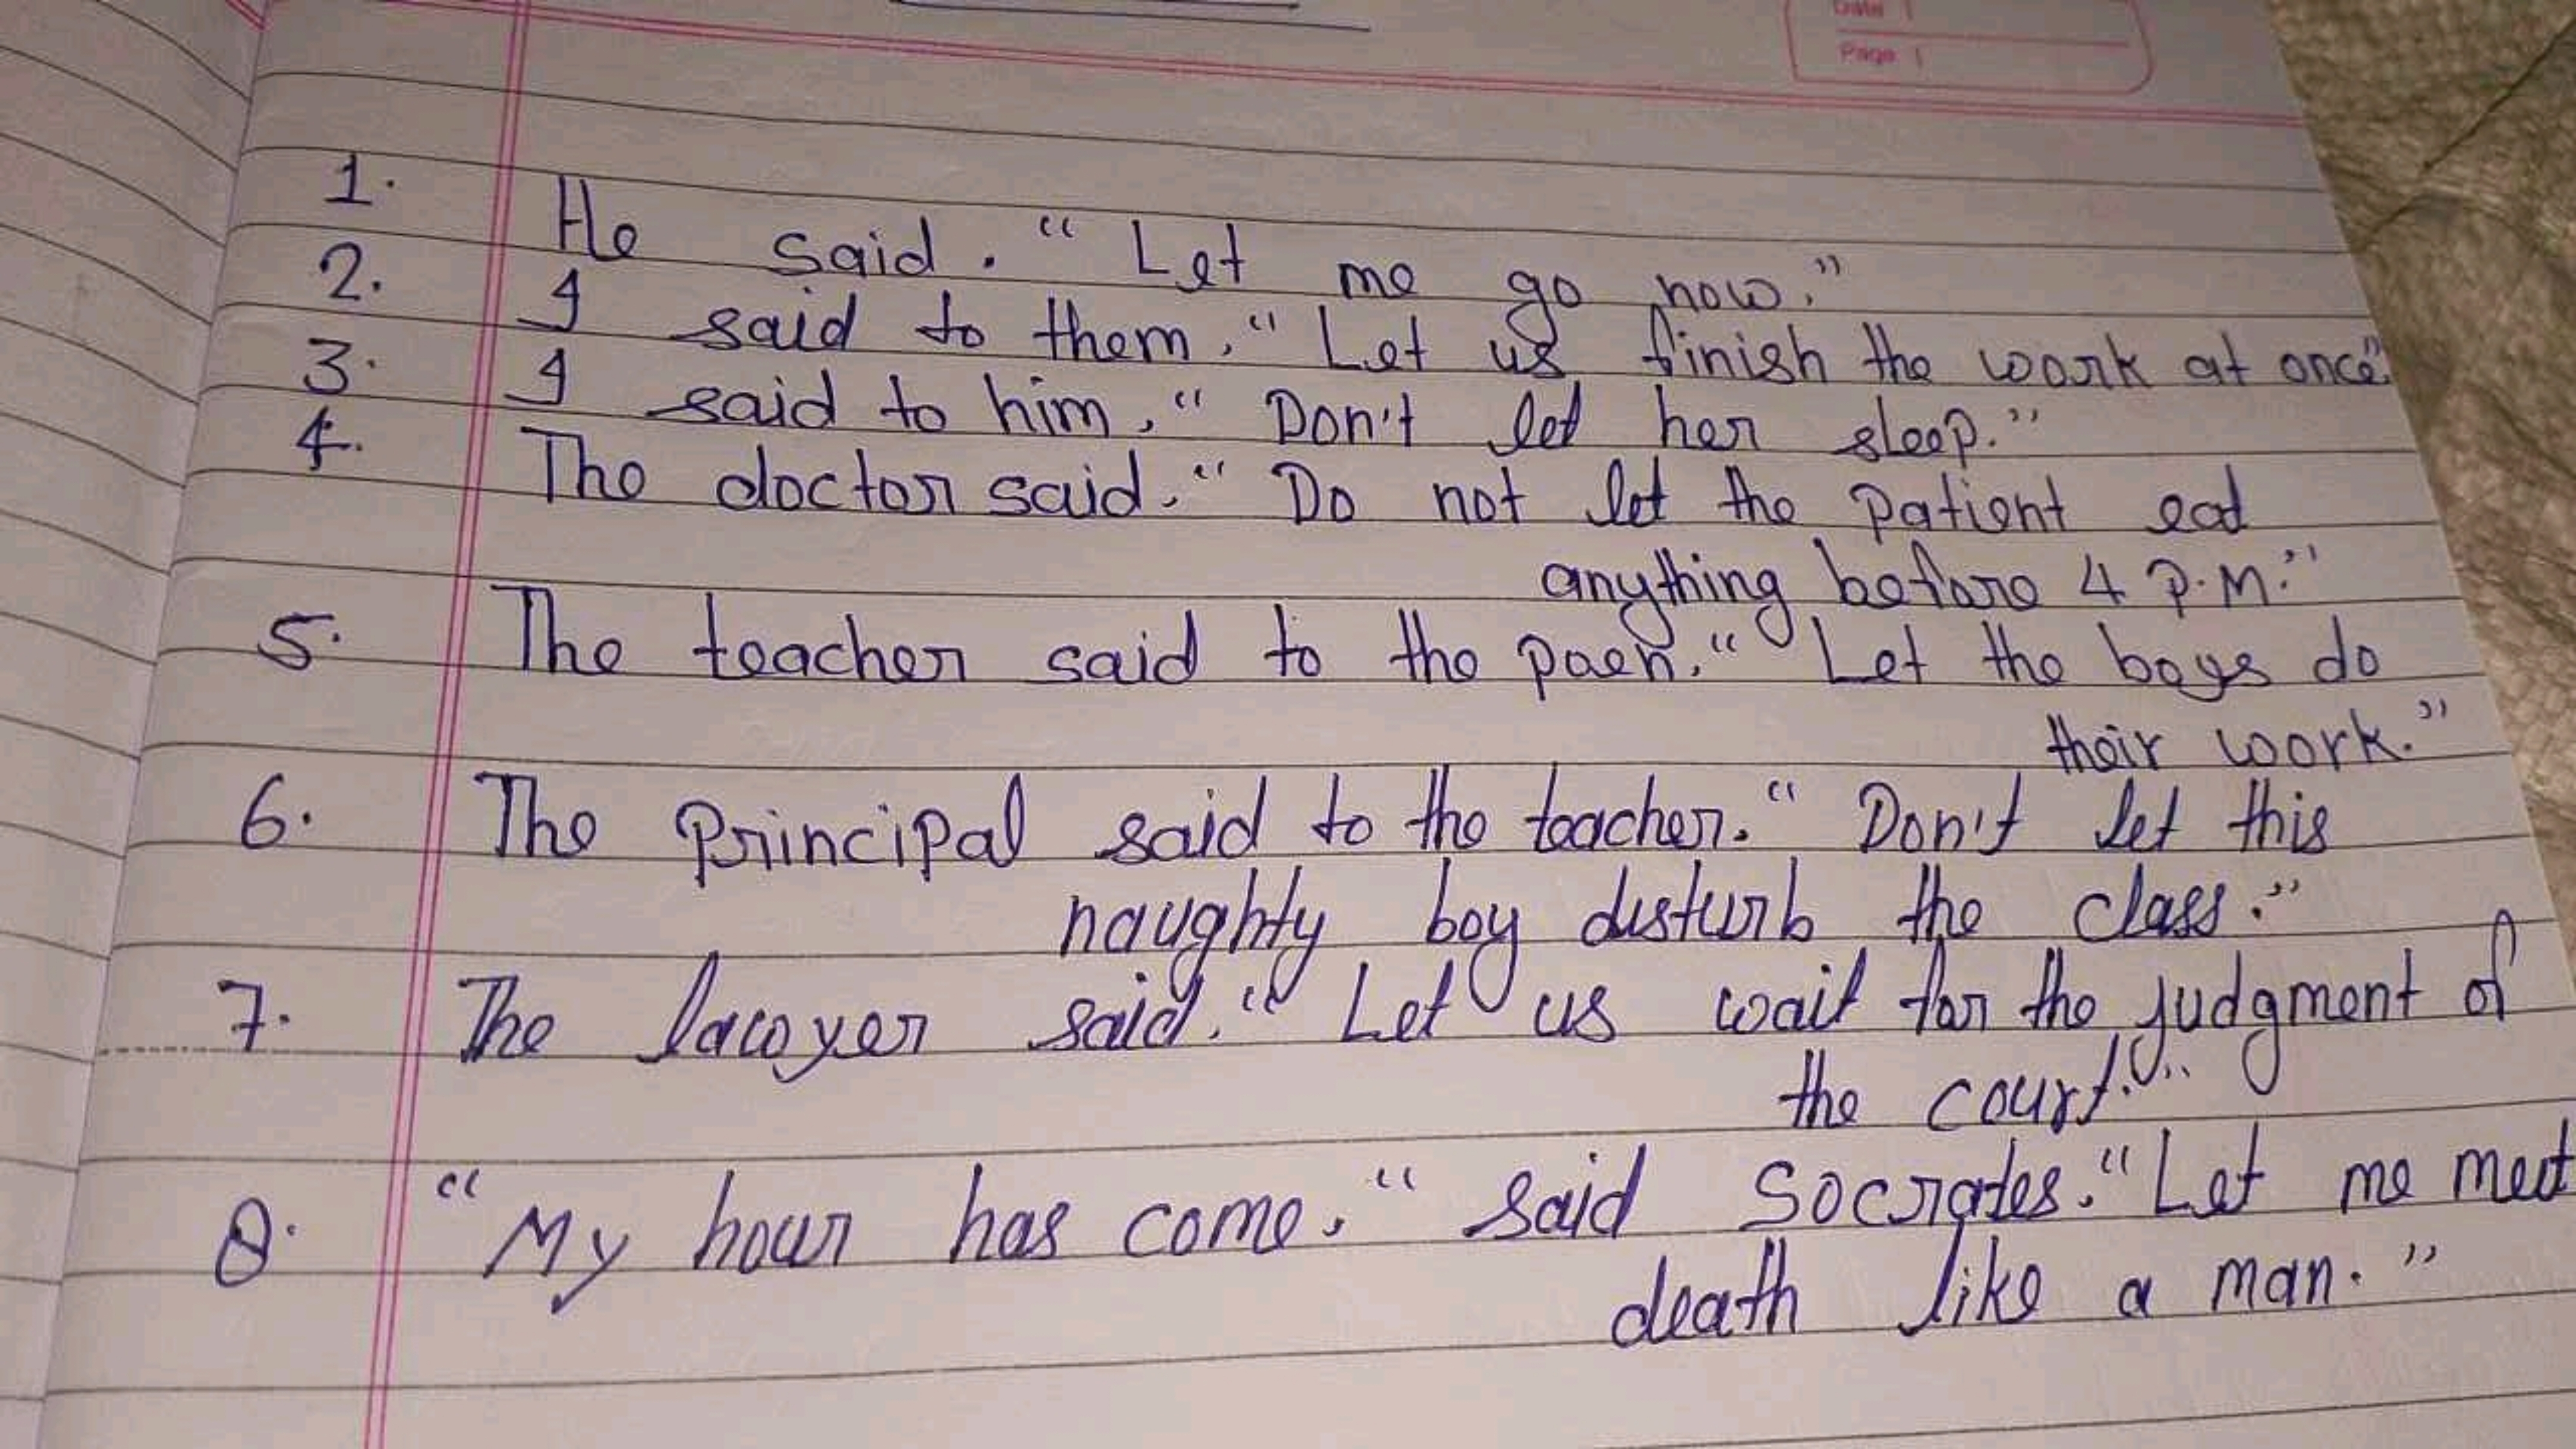 Date
Page
1. He said. "Let me go now."
2. I said to them, "Let us finish the work at once".
3. I said to him, "Don't let her sleep."
4. The doctor said, "Do not let the patient eat
anything before 4 P.M."
5. The teacher said to the paen, "Let the boys do
their work."
6. The Principal said to the teacher. "Don't let this
naughty boy disturb the class."
7. The lawyer said, "Let us wait for the judgment of
the court."
8. "My hour has come," said Socrates. "Let me meet
death like a man."